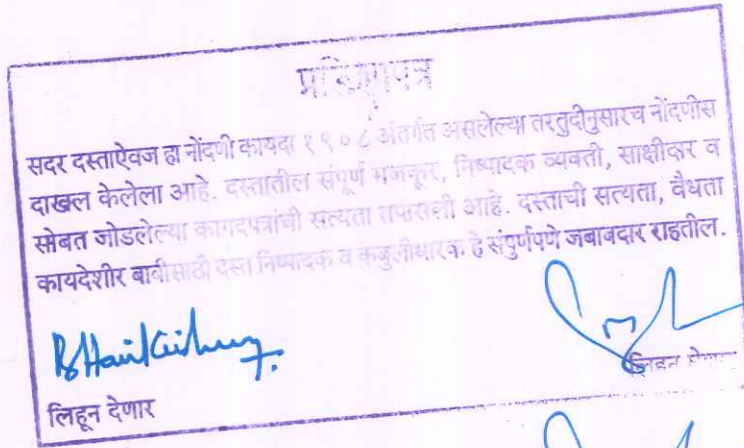 प्रतिज्ञापत्र
सदर दस्ताऐवज हा नोंदणी कायदा १९०८ अंतर्गत असलेल्या तरतुदीनुसारच नोंदणीस
दाखल केलेला आहे. दस्तातील संपूर्ण मजकूर, निष्पादक व्यक्ती, साक्षीदार व
सोबत जोडलेल्या कागदपत्रांची सत्यता तपासली आहे. दस्ताची सत्यता, वैधता
कायदेशीर बाबीसाठी दस्त निष्पादक व कबुलीधारक हे संपुर्णपणे जबाबदार राहतील.
लिहून देणार
लिहून